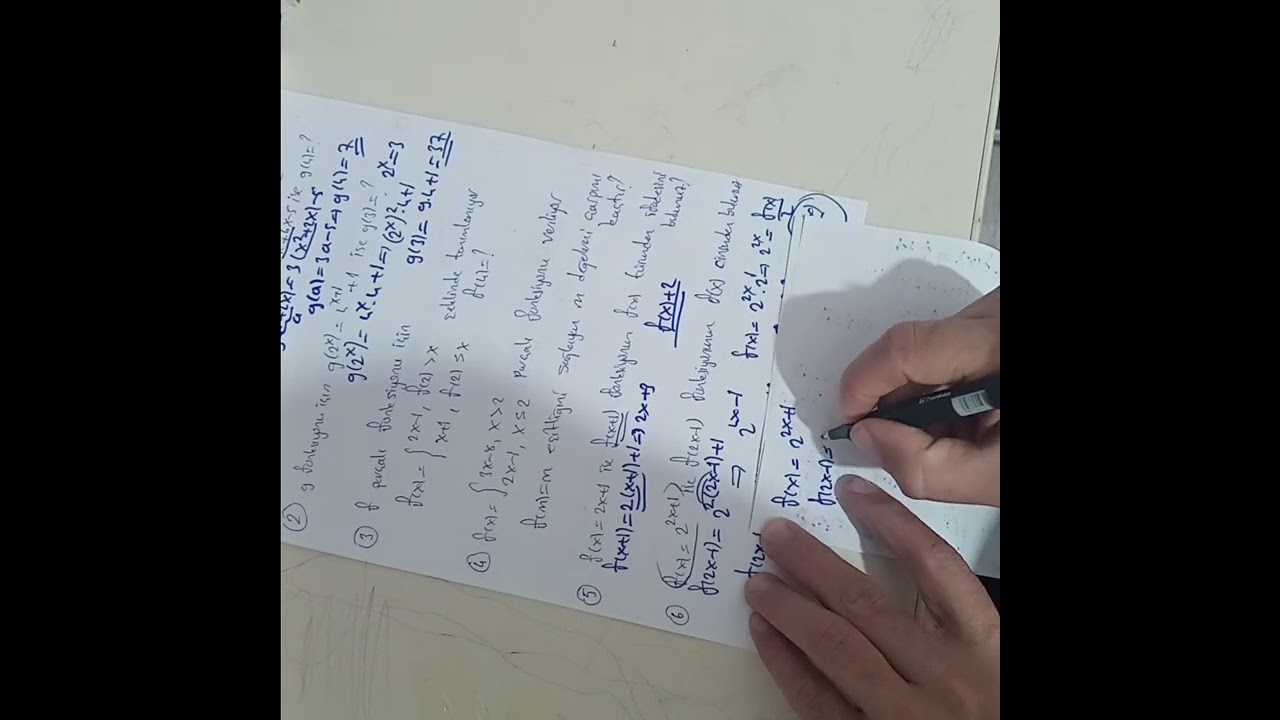 g(a)= 3a-5 ⇒ g(4)= 7
② g fonksiyonu için g(2^x) = 4^(x+1) + 1 ise g(3) = ?
g(2^x) = 4^x . 4+1 ⇒ (2^x)^2 . 4+1 2^x=3
g(3) = 9.4+1 = 37
③ f parçalı fonksiyonu için
f(x) = { 2x-1, f(2) > x
x+1, f(2) ≤ x şeklinde tanımlanıyor f(4) = ?
④ f(x) = { 3x-8, x>2
2x-1, x≤2 parçalı fonksiyonu veriliyor
f(m)=m eşitliğini sağlayan m değerleri çarpımı kaçtır?
⑤ f(x) = 2x+1 ise f(x+1) fonksiyonun f(x) türünden ifadesini bulunuz?
f(x+1) = 2(x+1)+1 ⇒ 2x+3 f(x)+2
⑥ f(x) = 2^(2x+1) ise f(2x-1) fonksiyonunun f(x) cinsinden bulunuz
f(2x-1) = 2^(2(2x-1)+1) ⇒ 2^(4x-1) f(x) = 2^(2x) . 2^1 ⇒ 2^(2x) = f(x)/2
f(2x-1
f(x) = 2^(2x+1)
f(2x-1) =